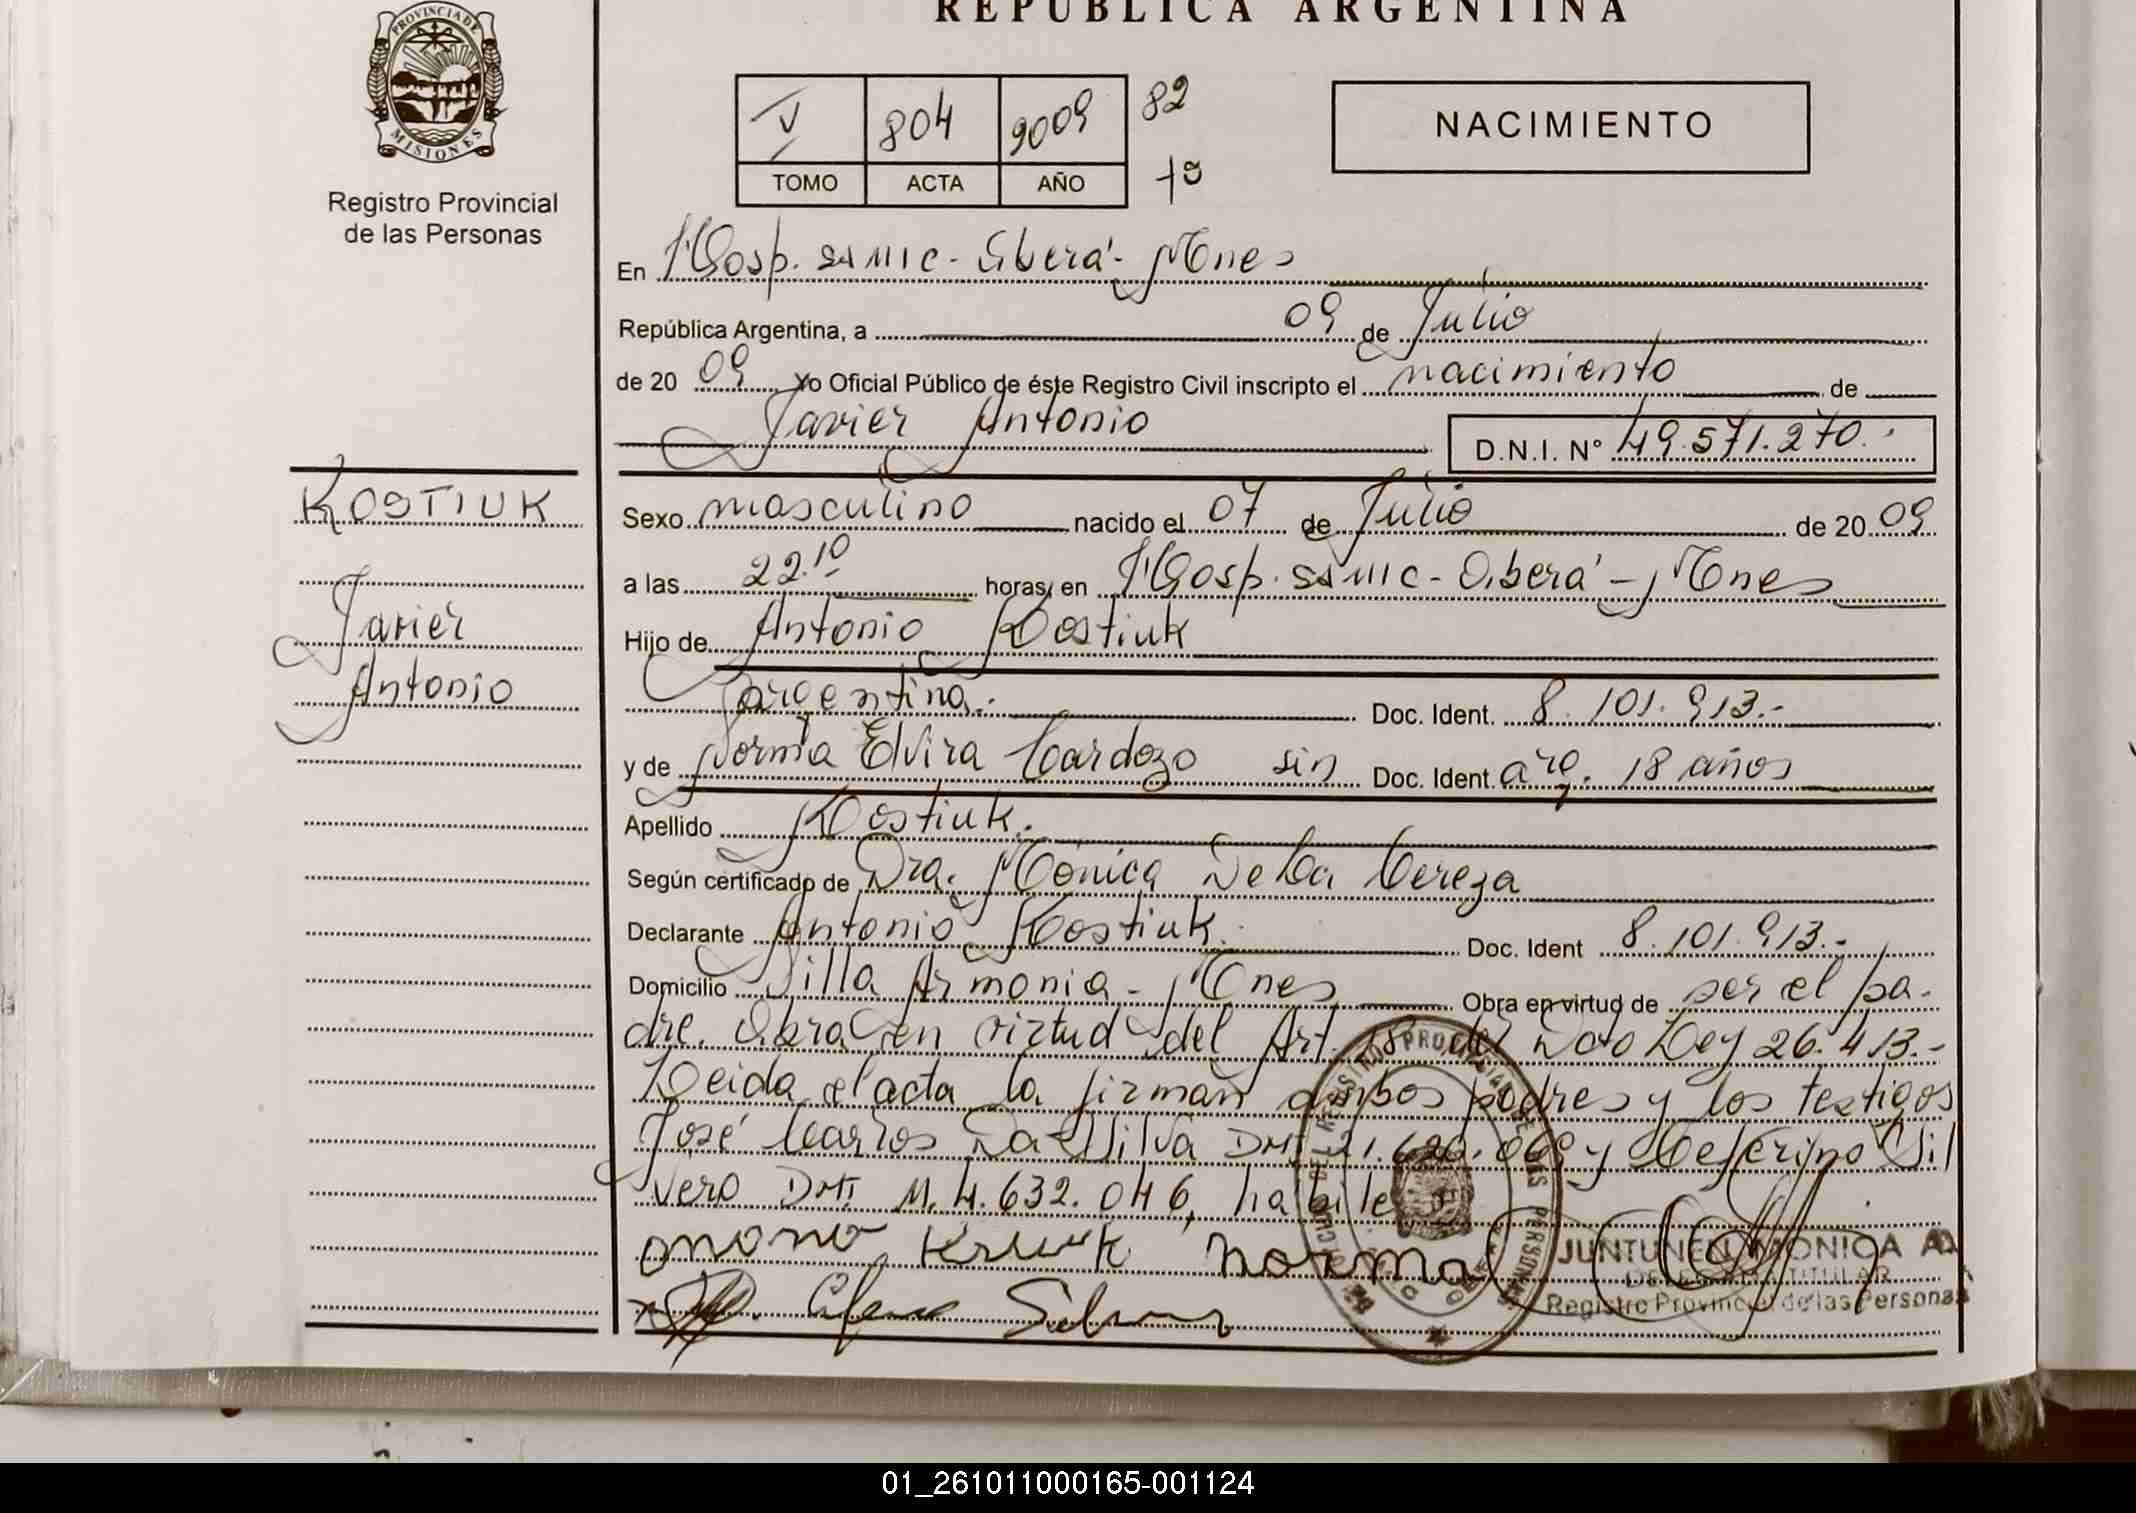 REPUBLICA ARGENTINA
PROVINCIA DE
MISIONES
Registro Provincial
de las Personas
V 804 2009 82
TOMO ACTA AÑO
NACIMIENTO
En Hosp. SAMIC - Oberá - Mnes
República Argentina, a 09 de Julio
de 20 09 Yo Oficial Público de éste Registro Civil inscripto el nacimiento de
Javier Antonio
D.N.I. N° 49.571.270.
KOSTIUK
Javier
Antonio
Sexo masculino nacido el 07 de Julio de 20 09
a las 22.10 horas, en Hosp. SAMIC - Oberá - Mnes
Hijo de Antonio Kostiuk
argentina. Doc. Ident. 8.101.913.-
y de Norma Elvira Cardozo sin Doc. Ident. arg. 18 años
Apellido Kostiuk.
Según certificado de Dra. Mónica De La Cereza
Declarante Antonio Kostiuk. Doc. Ident 8.101.913.-
Domicilio Villa Armonia - Mnes Obra en virtud de ser el pa-
dre. Obra en virtud del Art. 18 del Dcto Ley 26.413.-
Leida el acta la firman ambos padres y los testigos
José Carlos Da Silva DNI y Ceferino Sil
vero DNI M. 4.632.046, habiles
norma
JUNTUNEN MONICA A.
TITULAR
Registro Provincial de las Personas
01_261011000165-001124